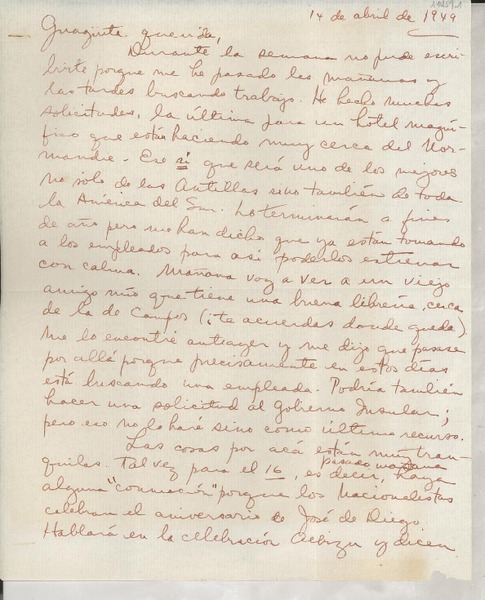 14 de abril de 1949
Guagüita querida,
Durante la semana no pude escri-
birte porque me he pasado las mañanas y
las tardes buscando trabajo. He hecho muchas
solicitudes, la última para un hotel magní-
fico que están haciendo muy cerca del Nor-
mandie. Ese sí que será uno de los mejores
no solo de las Antillas sino también de toda
la América del Sur. Lo terminarán a fines
de año pero me han dicho que ya están tomando
a los empleados para así poderlos entrenar
con calma. Mañana voy a ver a un viejo
amigo mío que tiene una buena librería, cerca
de la de Campos (¿te acuerdas donde queda?)
Me lo encontré antiayer y me dijo que pasase
por allá porque precisamente en estos días
está buscando una empleada. Podría también
hacer una solicitud al Gobierno Insular;
pero eso no lo haré sino como último recurso.
Las cosas por acá están muy tran-
quilas. Tal vez para el 16, es decir, pasado mañana haya
alguna "conmoción" porque los Nacionalistas
celebran el aniversario de José de Diego.
Hablará en la celebración Albizu y dicen